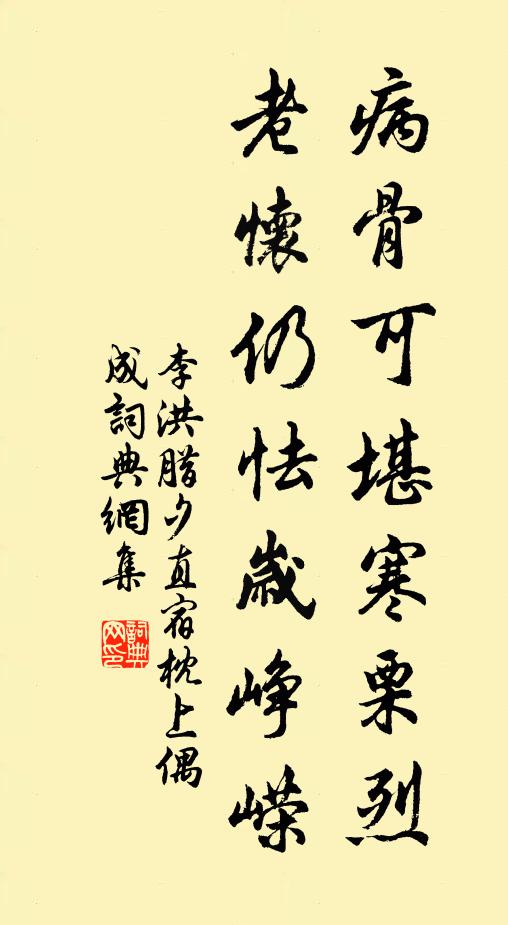 病骨可堪寒栗烈
老懷仍怯歲崢嶸
李洪腊夕直宿枕上偶
成詞典網集
詞典网印